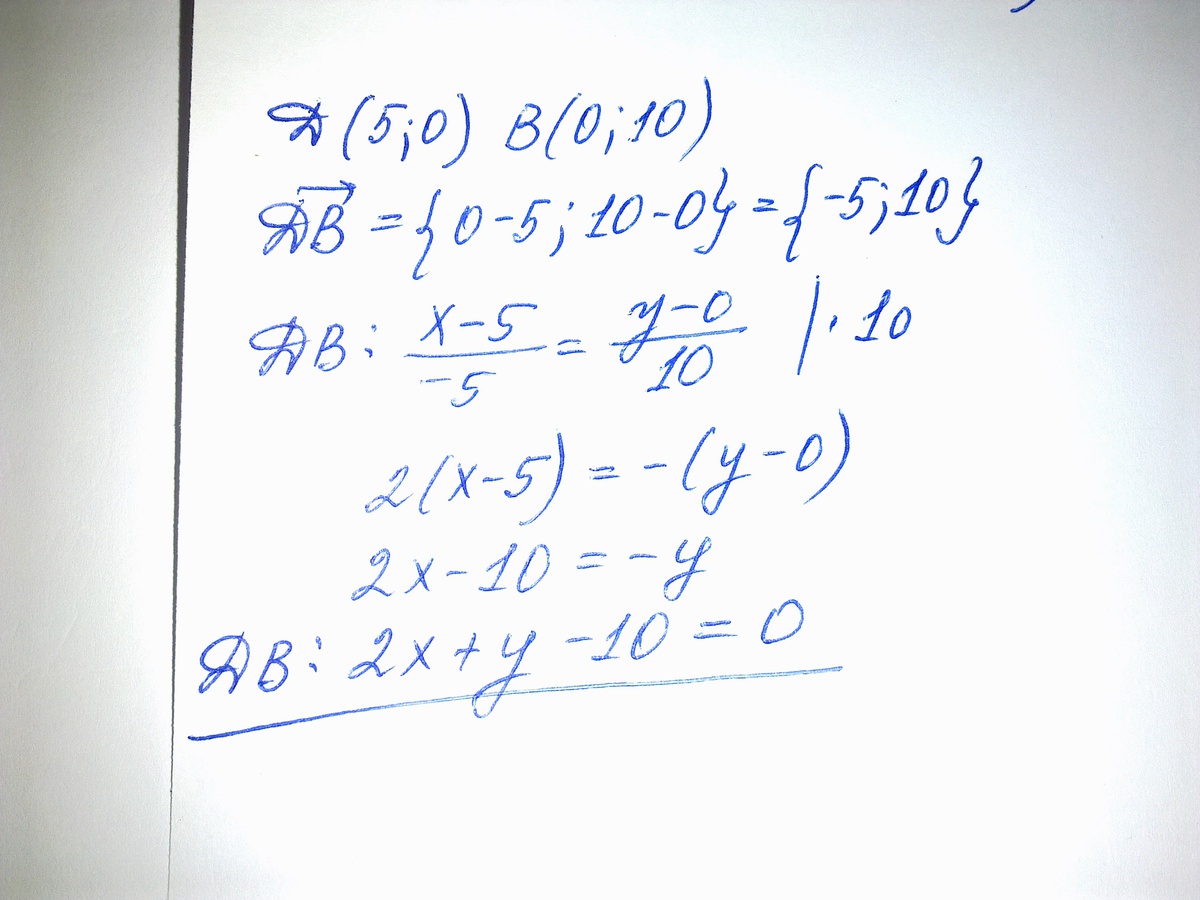 Д(5;0) B(0;10)
ДB = {0-5; 10-0} = {-5;10}
ДB: x-5/-5 = y-0/10 |·10
2(x-5) = -(y-0)
2x-10 = -y
ДB: 2x+y-10=0